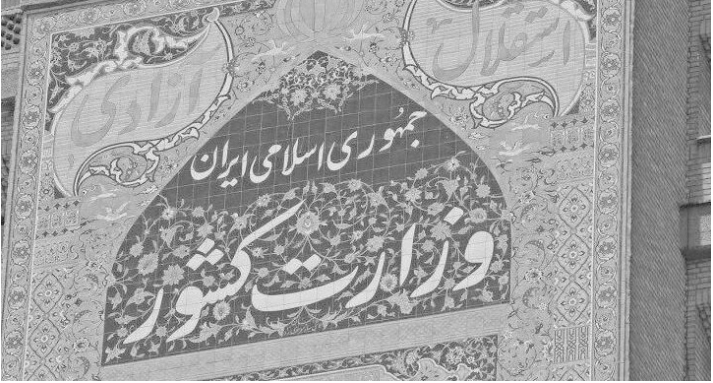 استقلال
آزادی
جمهوری اسلامی ایران
وزارت کشور